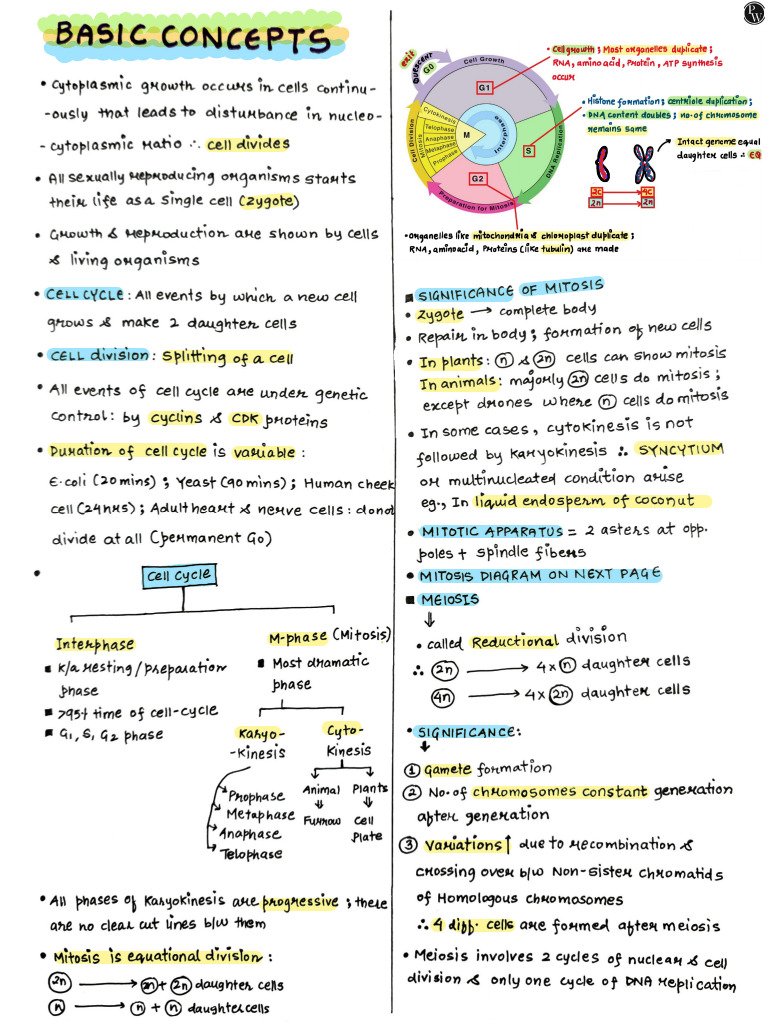 PW
BASIC CONCEPTS
• Cytoplasmic growth occurs in cells continu-
-ously that leads to disturbance in nucleo-
-cytoplasmic ratio ∴ cell divides
• All sexually reproducing organisms starts
their life as a single cell (zygote)
• Growth & reproduction are shown by cells
& living organisms
• CELL CYCLE: All events by which a new cell
grows & make 2 daughter cells
• CELL division: Splitting of a cell
• All events of cell cycle are under genetic
control: by cyclins & CDK proteins
• Duration of cell cycle is variable:
E-coli (20 mins); Yeast (90 mins); Human cheek
cell (24 hrs); Adult heart & nerve cells: donot
divide at all (permanent G0)
• Cell Cycle
Interphase
■ K/a resting/preparation
phase
■ >95% time of cell-cycle
■ G1, S, G2 phase
M-phase (Mitosis)
■ Most dramatic
phase
Karyo-
-kinesis
Prophase
Metaphase
Anaphase
Telophase
Cyto-
kinesis
Animal
Furrow
Plants
Cell
Plate
• All phases of Karyokinesis are progressive; there
are no clear cut lines b/w them
• Mitosis is equational division:
2n → 2n + 2n daughter cells
n → n + n daughter cells
exit
QUESCENT
G0
Cell Growth
G1
S
DNA Replication
G2
Preparation for Mitosis
Cell Division
Mitosis
Cytokinesis
Telophase
Anaphase
Metaphase
Prophase
M
Interphase
• Cell growth; Most organelles duplicate;
RNA, amino acid, Protein, ATP synthesis
occur
• Histone formation; centriole duplication;
• DNA content doubles; no. of chromosome
remains same
Intact genome equal
daughter cells ∴ EQ
2C → 4C
2n → 2n
• Organelles like mitochondria & chloroplast duplicate;
RNA, aminoacid, Proteins (like tubulin) are made
■ SIGNIFICANCE OF MITOSIS
• Zygote → complete body
• Repair in body; formation of new cells
• In plants: n & 2n cells can show mitosis
In animals: majorly 2n cells do mitosis;
except drones where n cells do mitosis
• In some cases, cytokinesis is not
followed by Karyokinesis ∴ SYNCYTIUM
or multinucleated condition arise
eg., In liquid endosperm of coconut
• MITOTIC APPARATUS = 2 asters at opp.
poles + spindle fibers
• MITOSIS DIAGRAM ON NEXT PAGE
■ MEIOSIS
⇓
• called Reductional division
∴ 2n → 4 x n daughter cells
4n → 4 x 2n daughter cells
• SIGNIFICANCE:
① Gamete formation
② No. of chromosomes constant generation
after generation
③ Variations↑ due to recombination &
crossing over b/w Non-sister chromatids
of Homologous chromosomes
∴ 4 diff. cells are formed after meiosis
• Meiosis involves 2 cycles of nuclear & cell
division & only one cycle of DNA replication